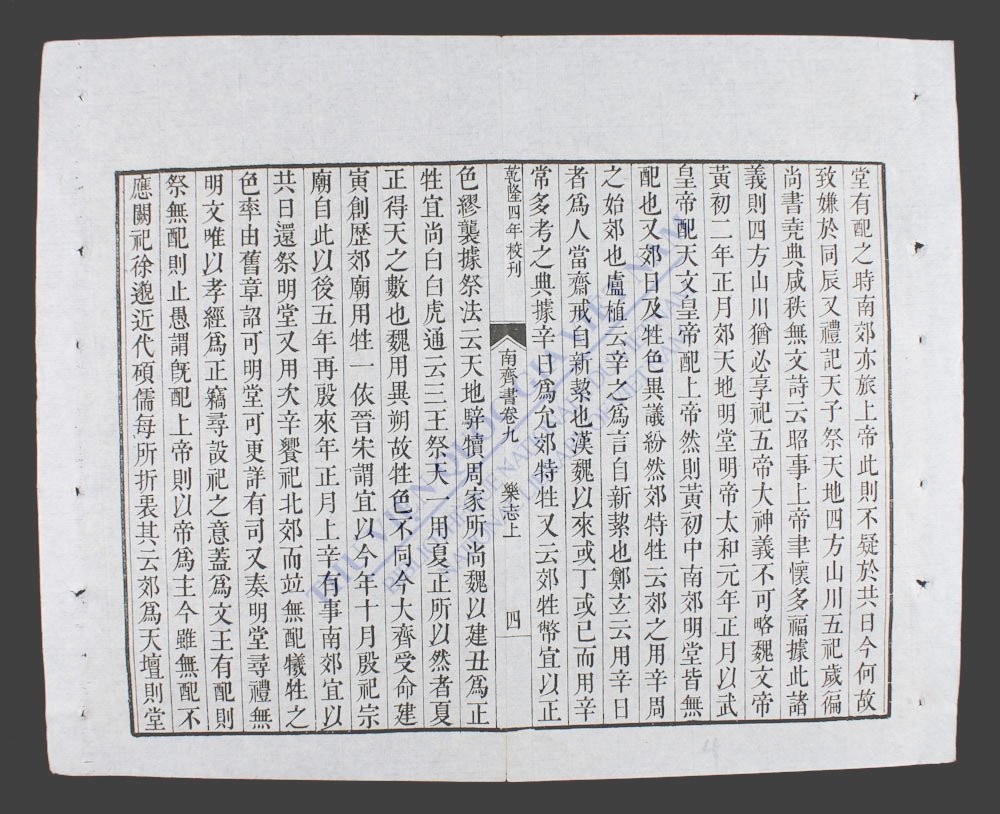 堂有配之時南郊亦旅上帝此則不疑於共日今何故
致嫌於同辰又禮記天子祭天地四方山川五祀歲徧
尚書堯典咸秩無文詩云昭事上帝聿懷多福據此諸
義則四方山川猶必享祀五帝大神義不可略魏文帝
黃初二年正月郊天地明堂明帝太和元年正月以武
皇帝配天文皇帝配上帝然則黃初中南郊明堂皆無
配也又郊日及牲色異議紛然郊特牲云郊之用辛周
之始郊也盧植云辛之爲言自新絜也鄭玄云用辛日
者爲人當齋戒自新絜也漢魏以來或丁或己而用辛
常多考之典據辛日爲允郊特牲又云郊牲幣宜以正
乾隆四年校刊
南齊書卷九 樂志上 四
色繆襲據祭法云天地騂犢周家所尚魏以建丑爲正
牲宜尚白白虎通云三王祭天一用夏正所以然者夏
正得天之數也魏用異朔故牲色不同今大齊受命建
寅創歷郊廟用牲一依晉宋謂宜以今年十月殷祀宗
廟自此以後五年再殷來年正月上辛有事南郊宜以
共日還祭明堂又用次辛饗祀北郊而竝無配犧牲之
色率由舊章詔可明堂可更詳有司又奏明堂尋禮無
明文唯以孝經爲正竊尋設祀之意蓋爲文王有配則
祭無配則止愚謂旣配上帝則以帝爲主今雖無配不
應闕祀徐邈近代碩儒每所折衷其云郊爲天壇則堂